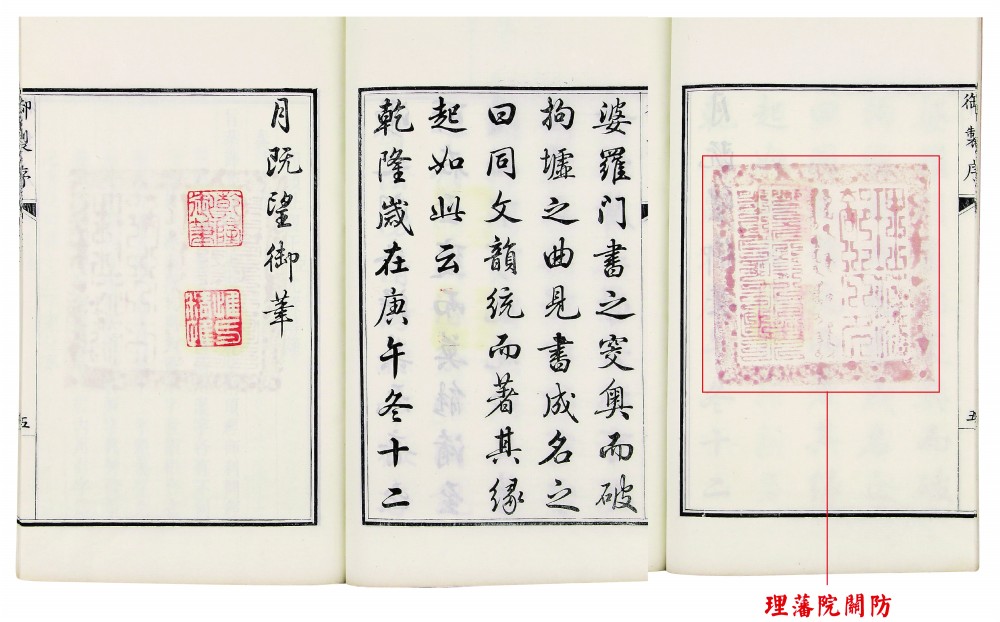 御製序
五
婆羅門書之窔奧而破
拘墟之曲見書成名之
曰同文韻統而著其緣
起如此云
乾隆歲在庚午冬十二
月既望御筆
御製序
五
理藩院關防